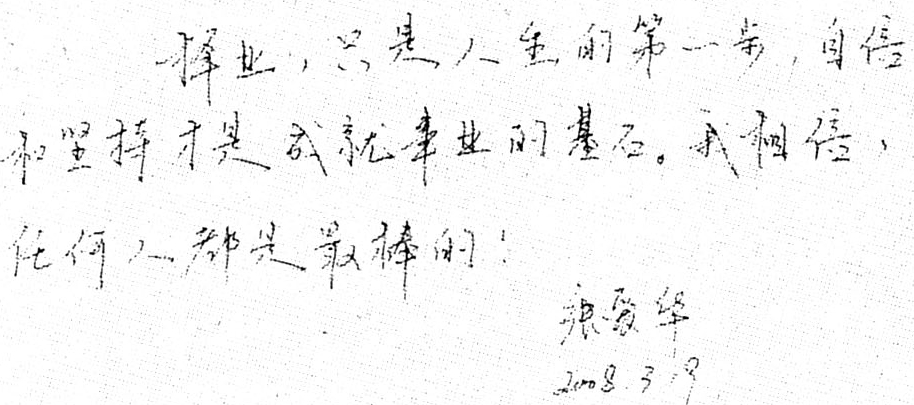 择业，只是人生的第一步，自信
和坚持才是成就事业的基石。我相信，
任何人都是最棒的！
华
2008.3.19